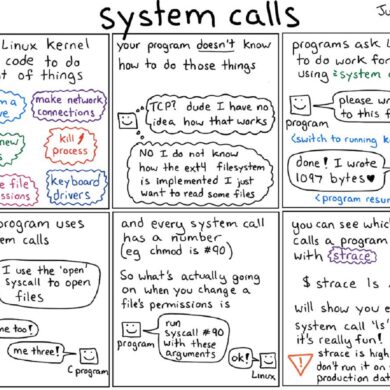 system calls
Ju
Linux kernel
code to do
t of things
make network
connections
kill
process
keyboard
drivers
your program doesn't know
how to do those things
TCP? dude I have no
idea how that works
NO I do not know
how the ext4 filesystem
is implemented I just
want to read some files
programs ask L
to do work for
using system
please w
to this f
program
<switch to running k
done! I wrote
1097 bytes♥
<program resum
program uses
em calls
I use the 'open'
syscall to open
files
me too!
me three!
C program
and every system call
has a number
(eg chmod is #90)
So what's actually going
on when you change a
file's permissions is
program
run
syscall #90
with these
arguments
ok!
Linux
you can see whic
calls a program
with strace
$ strace ls
will show you e
system call 'ls'
it's really fun!
strace is high
don't run it on
production dat